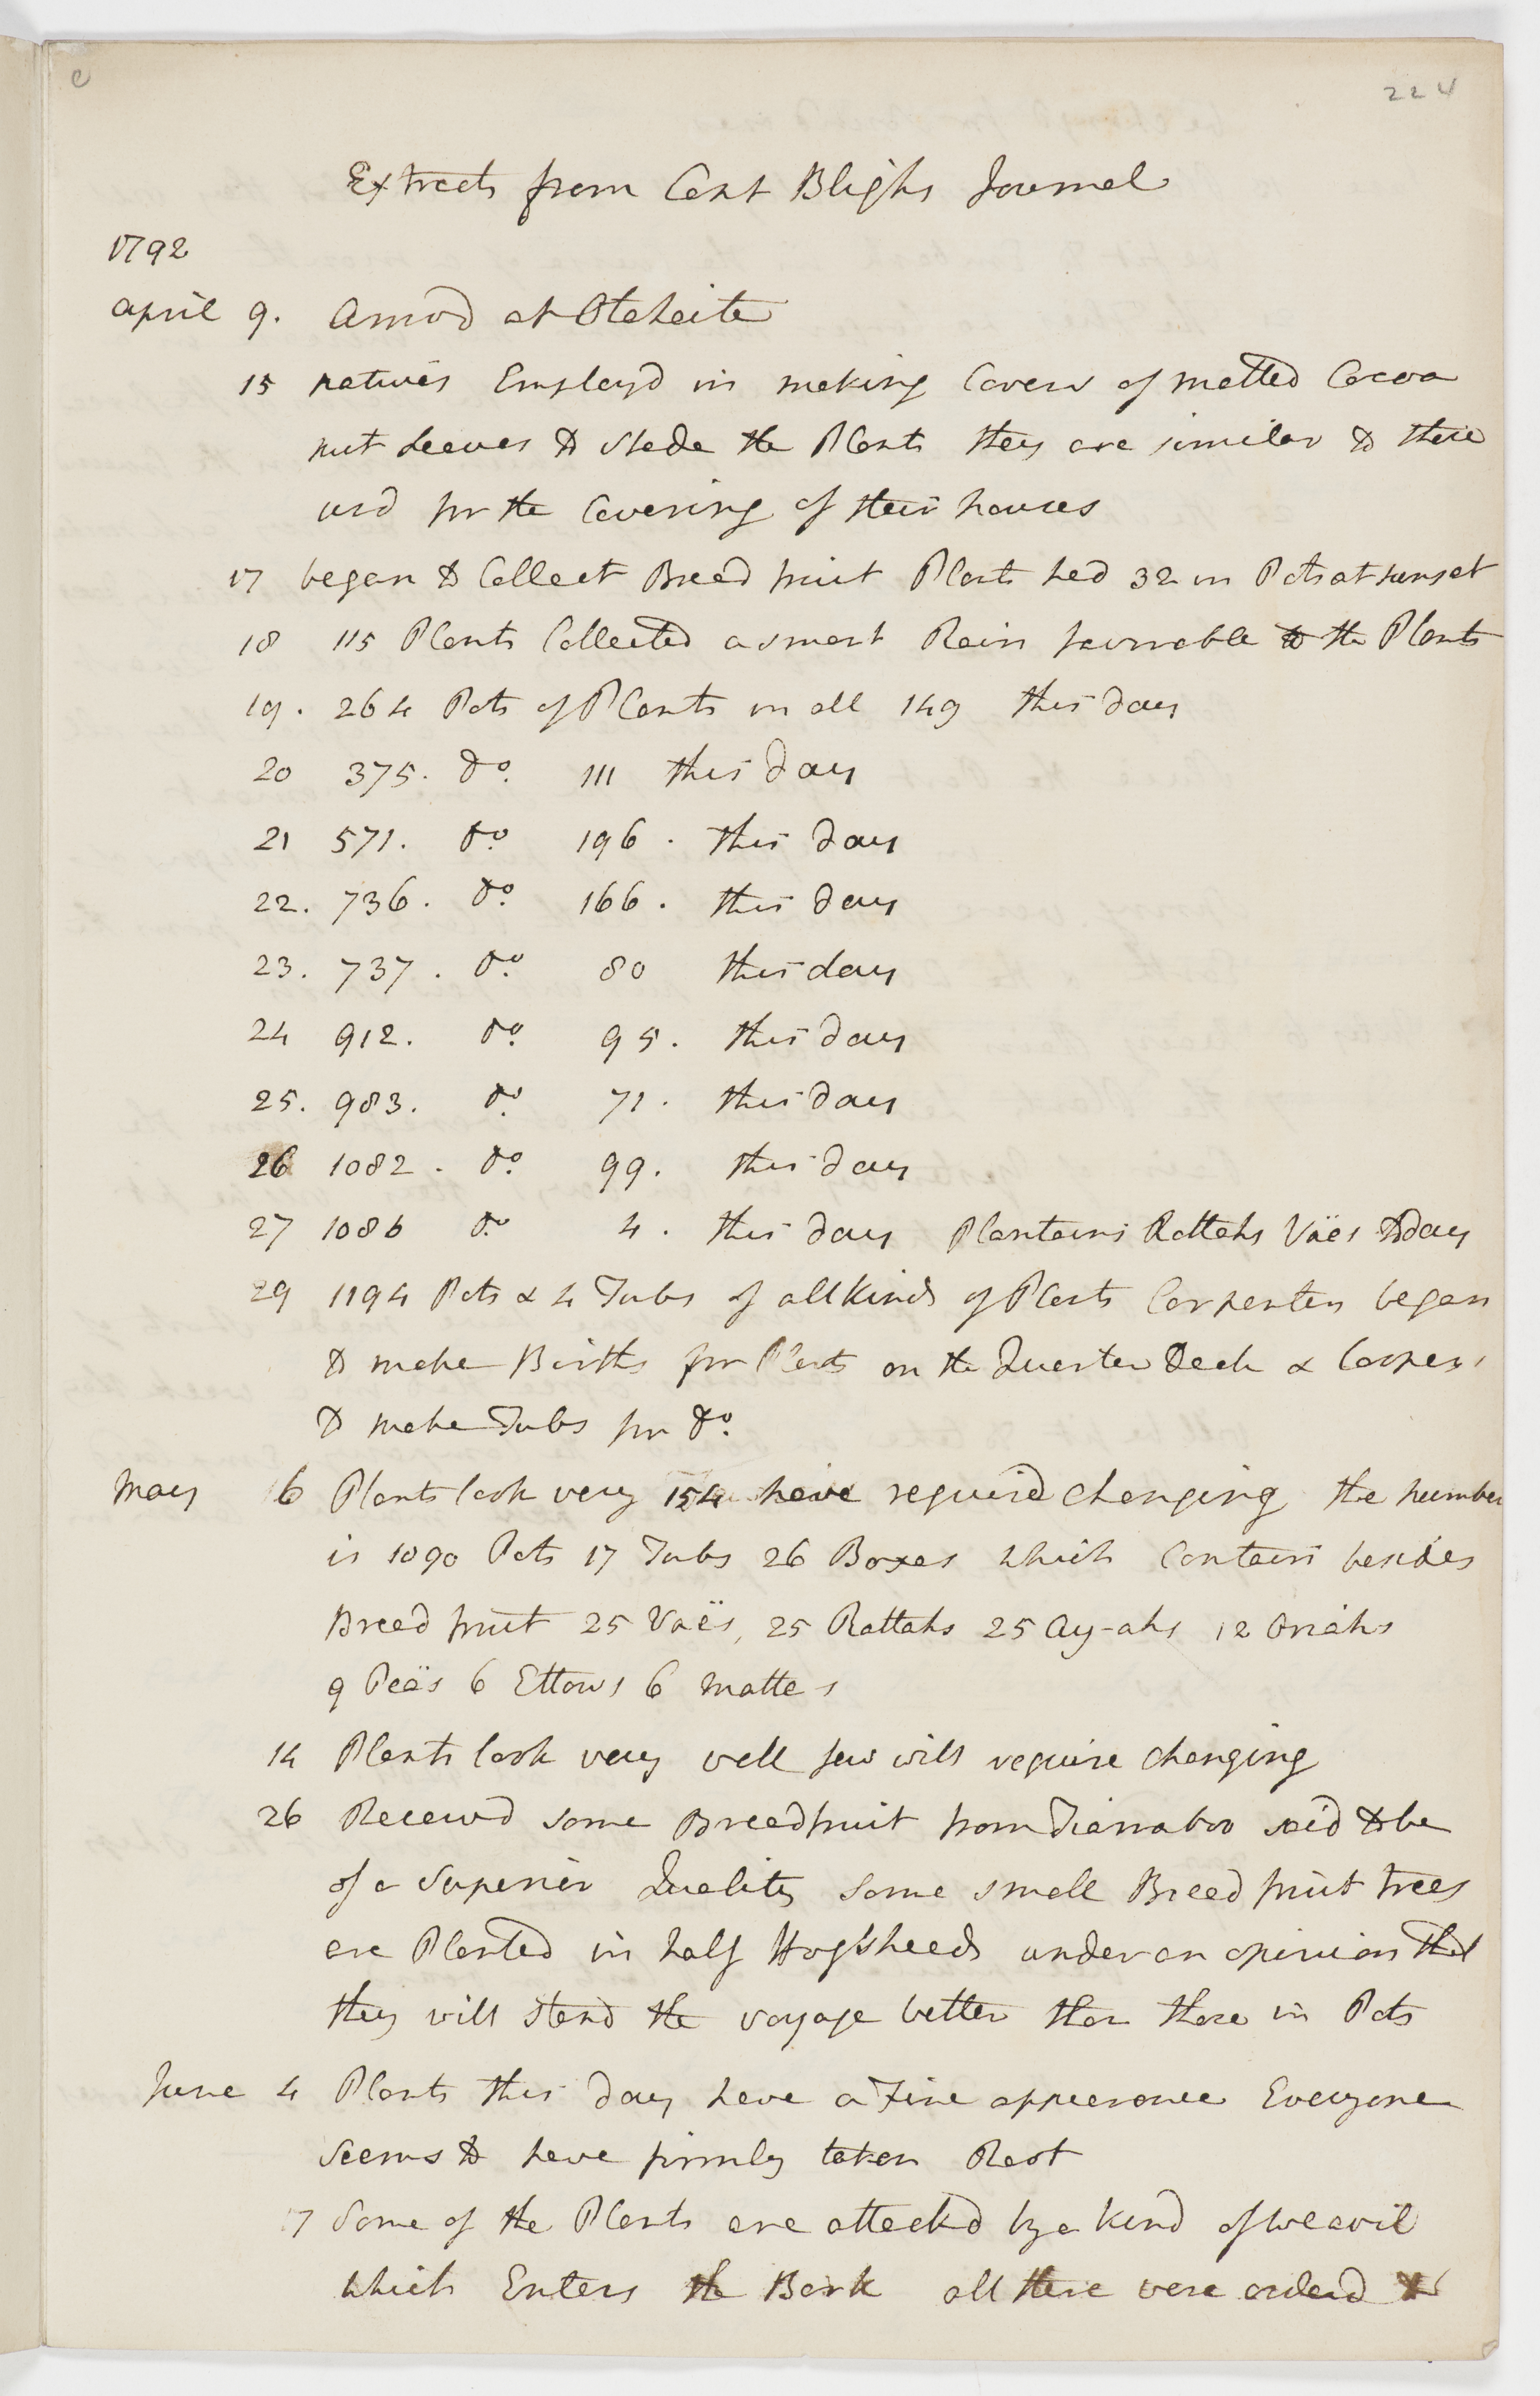 C
224
Extracts from Capt Blighs Journal
1792
April 9. Arrivd at Otaheite
15 natives Employd in making Covers of matted Cocoa
nut Leaves to shade the Plants they are similar to those
usd for the Covering of their houses
17 began to Collect Bread fruit Plants had 32 in Pots at sunset
18 115 Plants Collected a smart Rain favorable to the Plants
19. 264 Pots of Plants in all 149 this day
20 375. do. 111 this day
21 571. do. 196. this day
22. 736. do. 166. this day
23. 737. do. 80 this day
24 912. do. 95. this day
25. 983. do. 71. this day
26 1082. do. 99. this day
27 1086 do. 4. this day Plantains Rattahs Vaës today
29 1194 Pots & 4 Tubs of all kinds of Plants Carpenters began
to make Births for Plants on the Quarter Deck & Coopers
to make Tubs for do.
May 6 Plants look very 154 have requird changing the number
is 1090 Pots 17 Tubs 26 Boxes which Contain besides
Bread fruit 25 Vaës, 25 Rattahs 25 Ay-ahs 12 Oraiahs
9 Peeäs 6 Ettows 6 Mattes
14 Plants look very well few will require changing
26 Receivd some Breadfruit from Tiarraboo said to be
of a Superior Quality some small Bread fruit trees
are Planted in half Hogsheads under an opinion that
they will stand the voyage better than those in Pots
June 4 Plants this day have a Fine appearance Everyone
seems to have firmly taken Root
17 Some of the Plants are attackd by a kind of weavil
which Enters the Bark all these were orderd to